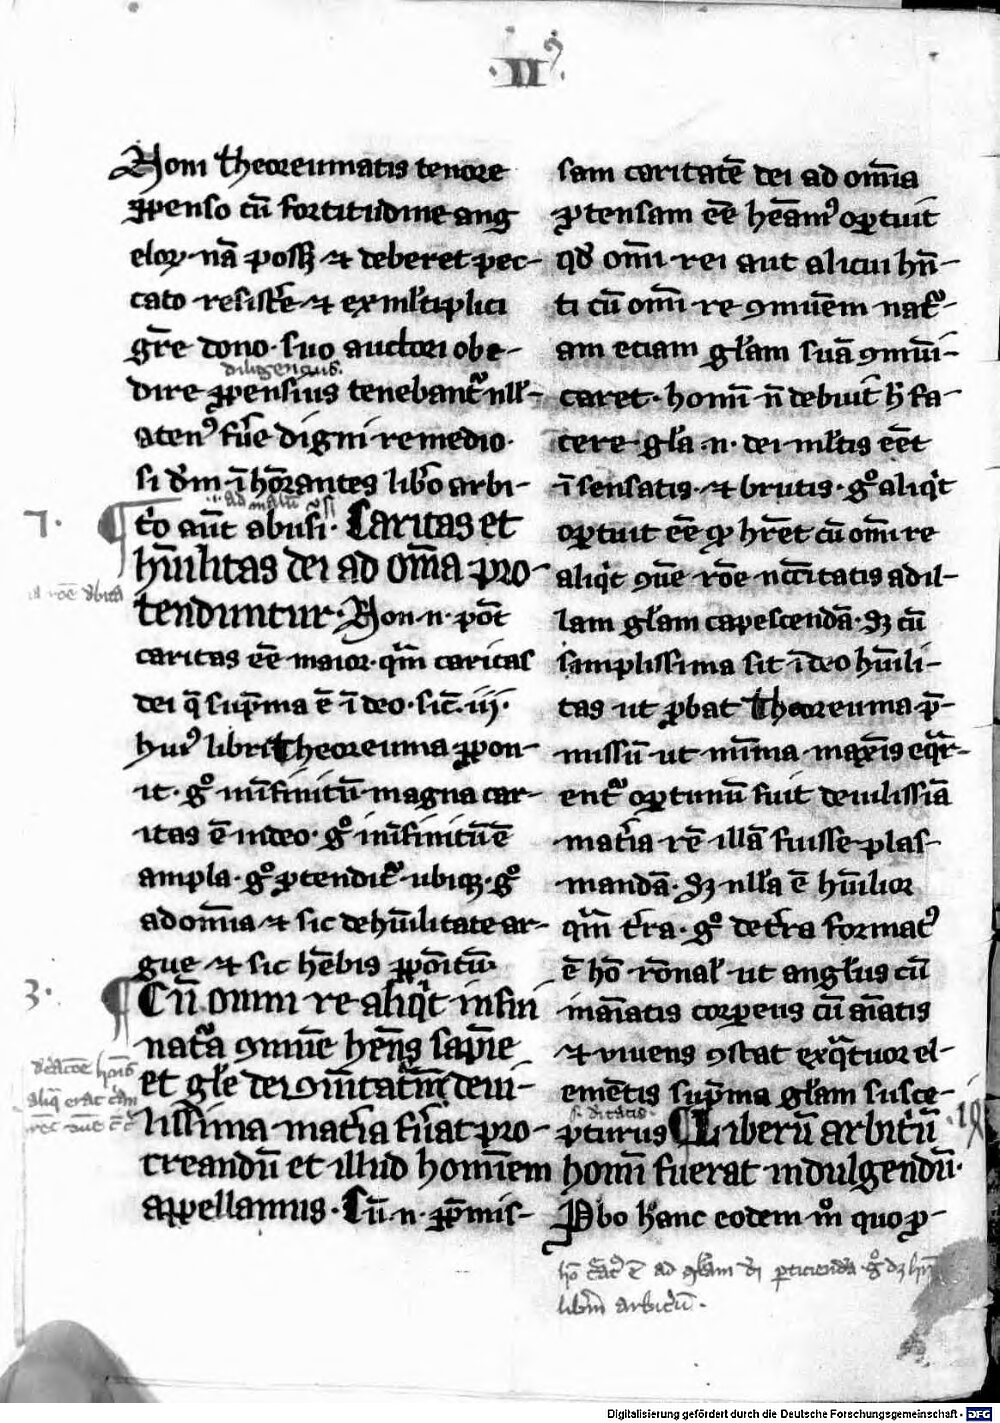 ·II·
Noni theoreumatis tenore
ꝓpenso cū fortitudine ang
eloꝝ nā posꝫ ⁊ deberet pec-
cato resistẽ ⁊ ex ml̄tiplici
gr̄e dono · suo auctori obe-
diligencius
dire ꝓpensius tenebant᷑ nll̄-
atenꝰ fūe digni remedio ·
si dm̄ ī hōrantes libo arbi-
ad malū
7. tͥo aūt abusi · Caritas et
hūilitas dei ad om̄ia pro-
tenduntur · Non · n · pōt
caritas eē maior · qm̄ caritas
dei q̄ sup̄ma ē ī deo · sic̄ · iij ·
huiꝰ libri theoreuma ꝓpon-
it · gͦ īnfinitū magna car-
itas ē in deo · gͦ infinitū ē
ampla · gͦ ꝓtendit᷑ ubiqꝫ · gͦ
ad om̄ia ⁊ sic de hūilitate ar-
gue ⁊ sic hēbis ꝓpōitū
3. Cū omni re aliqͥt infini
natᷓa ꝯmūe hēns sapīe
et gl̄e dei ꝯm̄tatīm de vi-
lissima mat̄ia fūat pro-
creandū et illud hominem
appellamus · Cū · n · ꝓmis-
sam caritatē dei ad om̄ia
ꝓtensam eē hēamꝰ oꝑtuit
qd̓ om̄i rei aut alicui hn̄-
ti cū om̄i re ꝯmūem natᷓ-
am eciam gl̄am suā ꝯmūi-
caret · homī n̄ debuit h̄ fa-
cere gl̄a · n · dei ml̄tis eēt
ī sensatis · ⁊ brutis · gͦ aliqͥt
oꝑtuit eē qͦ hr̄et cū om̄i re
aliqͥt ꝯūe rōe ncc̄itatis ad il-
lam gl̄am capescendā · Sꝫ cū
samplissima sit ī deo hūili-
tas ut ꝓbat theoreuma p̄-
missū · ut mīma maxīs eqͣr-
ent᷑ oꝑtunū fuit de vilissiā
mat̄ia rē illā fuisse plas-
mandā · Sꝫ nll̄a ē hūilior
qm̄ t̄ra · gͦ de t̄ra formatꝰ
ē hō rōnal̄ ut angl̄us cū
īnaīatis corꝑeus cū aīatis
⁊ vivens ꝯstat ex qͣtuor el-
emētis sup̄ma gl̄am susce-
pturus Liberū arbitͥū
homī fuerat indulgendū ·
Pbo hanc eodem mͦ quo ꝓ-
libm̄ arbitͥū ·
Digitalisierung gefördert durch die Deutsche Forschungsgemeinschaft - DFG